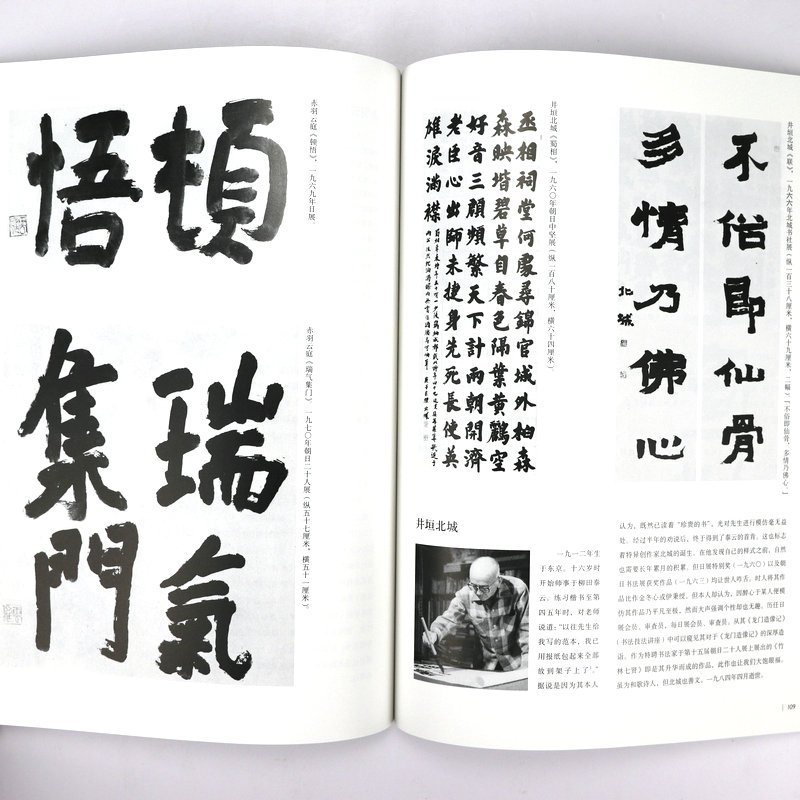 頓
悟
赤羽云庭《顿悟》，一九六九年日展。
瑞氣
集門
赤羽云庭《瑞气集门》 一九七〇年朝日二十人展（纵五十七厘米、横五十一厘米）
不俗即仙骨
多情乃佛心
北城
井垣北城《联》，一九六六年北城书社展（纵一百三十八厘米、横六十九厘米，二幅）[不俗即仙骨，多情乃佛心。]
丞相祠堂何處尋錦官城外柏森
森映堦碧草自春色隔葉黄鸝空
好音三顧頻繁天下計兩朝開濟
老臣心出師未捷身先死長使英
雄淚滿襟
井垣北城《蜀相》，一九六〇年朝日中坚展（纵一百八十厘米、横六十四厘米）。
井垣北城
一九一二年生
于东京。十六岁时
开始师事于柳田泰
云。练习楷书至第
四五年时，对老师
说道：“以往先生给
我写的范本，我已
用报纸包起来全部
放到架子上了。”
据说是因为其本人
认为，既然已读着“珍贵的书”，光对先生进行模仿毫无益
处。经过半年的劝说后，终于得到了泰云的首肯。这也标志
着特异创作家北城的诞生。在他发现自己的样式之前，自然
也需要长年累月的积累。但日展特别奖（一九六〇）以及朝
日书法展获奖作品（一九六三）均让世人咋舌。时人将其作
品比作金冬心或伊秉绶。但本人却认为，因醉心于某人便模
仿其作品乃平凡至极，然而大声强调个性却也无趣。历任日
展会员、审查员，每日展会员、审查员。从其《龙门造像记》
（书法技法讲座）中可以窥见其对于《龙门造像记》的深厚造
诣。作为特聘书法家于第十五届朝日二十人展上展出的《竹
林七贤》即是其升华而成的作品，此作也让我们大饱眼福。
虽为和歌诗人，但北城也善文。一九八四年四月逝世。
109